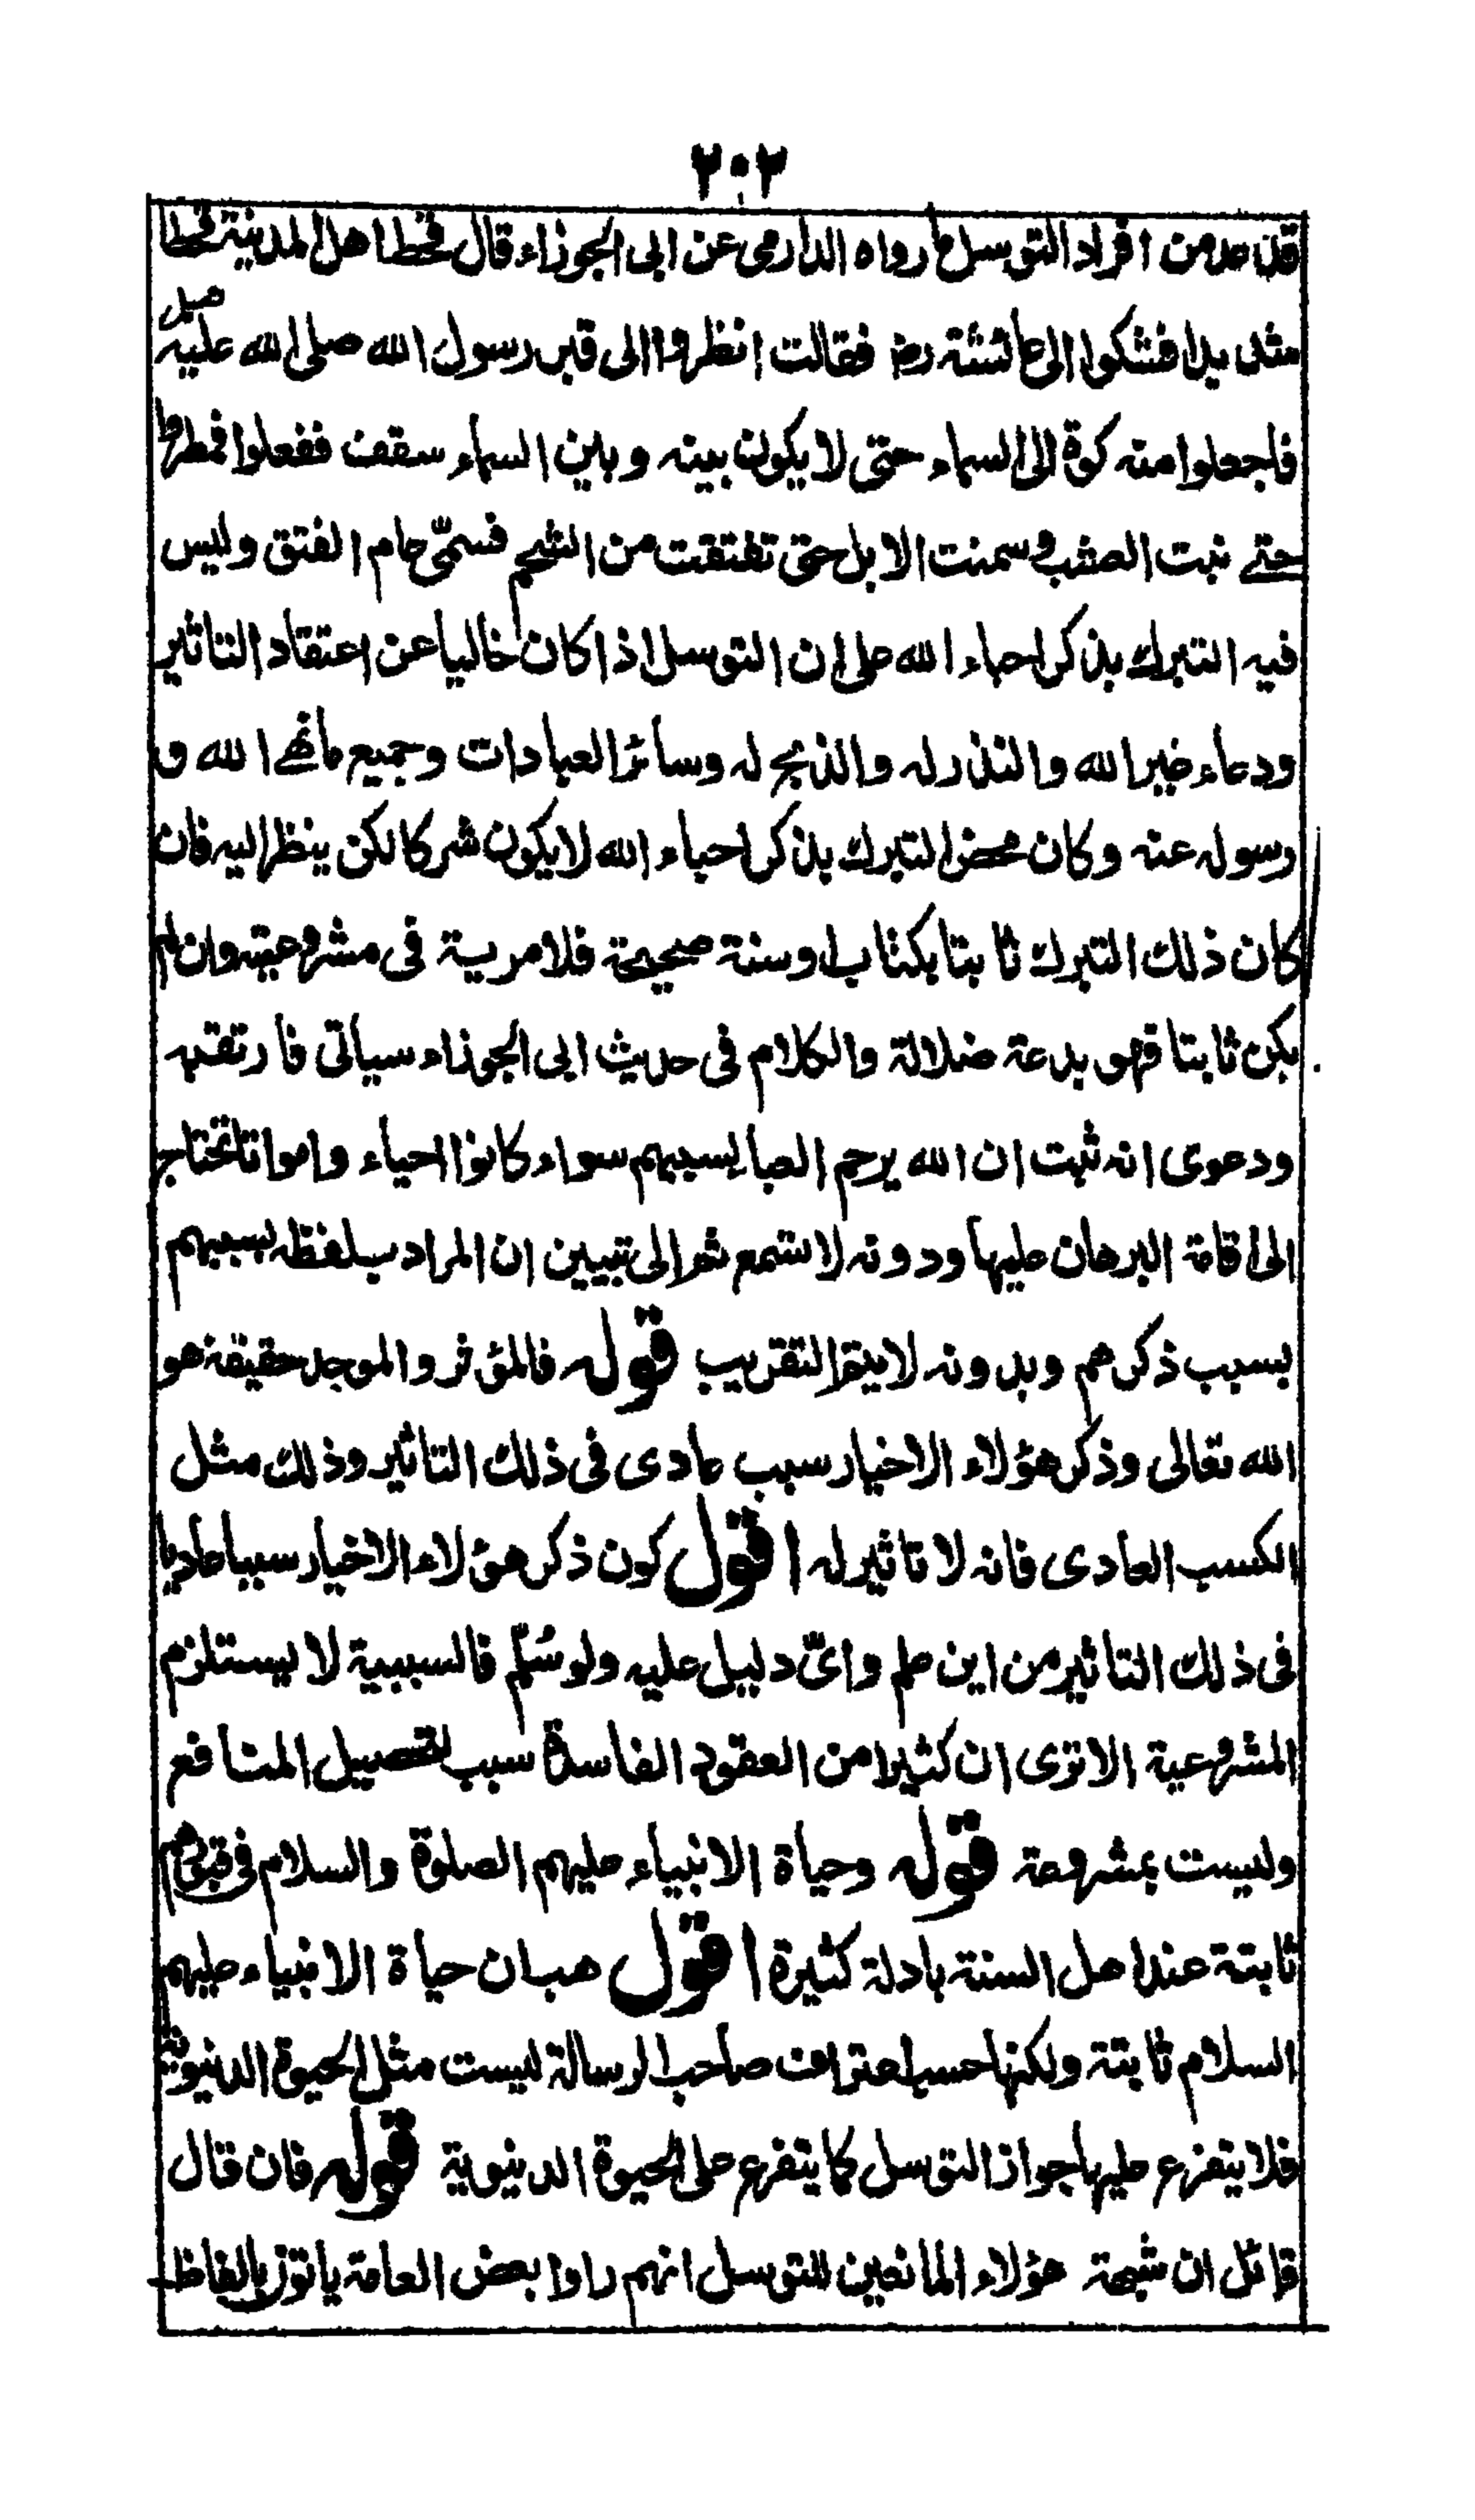 ٢٠٢
قد عد من افراد التوسل ما رواه الدارمى عن ابى الجوزاء قال قحط اهل المدينة قحطا
شديدا فشكوا الى عائشة رض فقالت انظروا الى قبر رسول الله صلى الله عليه
فاجعلوا منه كوة الى السماء حتى لا يكون بينه وباين السماء سقف ففعلوا فمطروا
حتے نبت العشب وسمنت الابل حتى تفتقت من الشحم فسمّى عام الفتق وليس
فيه التبرك بذكر احباء الله على ان التوسل اذا كان خاليا عن اعتقاد التاثير
ودعاء غير الله والنذر له والذبح له وسائر العبادات وجميع ما نهے الله و
رسوله عنه وكان محض التبرك بذكر احباء الله لا يكون شركا لكن ينظر اليه فان
كان ذلك التبرك ثابتا بكتاب او سنة صحيحة فلا مرية فى مشروعيته وان لم
يكن ثابتا فهو بدعة ضلالة والكلام فى حديث ابى الجوزاء سياتى فارتقبه
ودعوى انه ثبت ان الله يرحم العباد بسببهم سواء كانوا احياء وامواتا تحتاج
الى اقامة البرهان عليها ودونه لا تسمع ثم الى تبيين ان المراد بلفظه بسببهم
بسبب ذكرهم وبدونه لا يتم التقريب قوله فالمؤثر والموجد حقيقة هو
الله تعالى وذكر هؤلاء الاخيار سبب عادى فى ذلك التاثير وذلك مثل
الكسب العادى فانه لا تاثير له اقول كون ذكر هؤلاء الاخيار سببا عاديا
فى ذلك التاثير من اين علم واىّ دليل عليه ولو سُلّم فالسببية لا يستلزم
المشروعية الا ترى ان كثيرا من العقود الفاسدة سبب لتحصيل المنافع
وليست بمشروعة قوله وحياة الانبياء عليهم الصلوة والسلام فى قبورهم
ثابتة عند اهل السنة بادلة كثيرة اقول هب ان حياة الانبياء عليهم
السلام ثابتة ولكنها حسب اعتراف صاحب الرسالة ليست مثل الحيوة الدنيوية
فلا يتفرع عليها جواز التوسل كما يتفرع على الحيوة الدنيوية قوله فان قال
قائل ان شبهة هؤلاء المانعين للتوسل انهم راوا بعض العامة ياتون بالفاظ